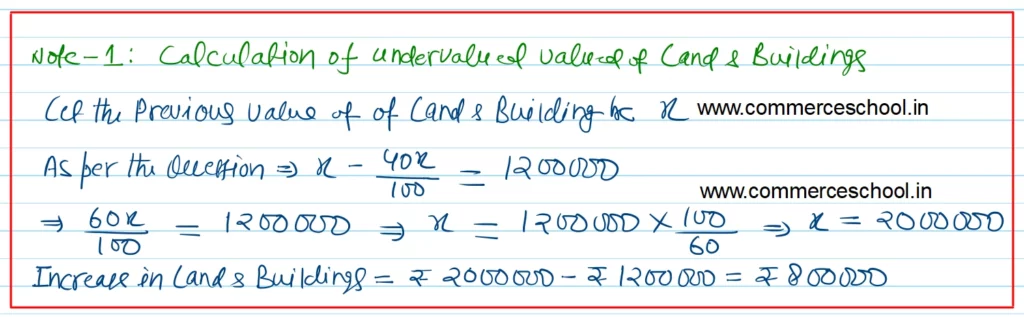 Note-1: Calculation of undervalued valued of Land & Buildings
Let the Previous value of of Land & Building be x www.commerceschool.in
As per the Question ⇒ x - 40x/100 = 1200000
www.commerceschool.in
⇒ 60x/100 = 1200000 ⇒ x = 1200000 × 100/60 ⇒ x = 2000000
Increase in Land & Buildings = ₹ 2000000 - ₹ 1200000 = ₹ 800000